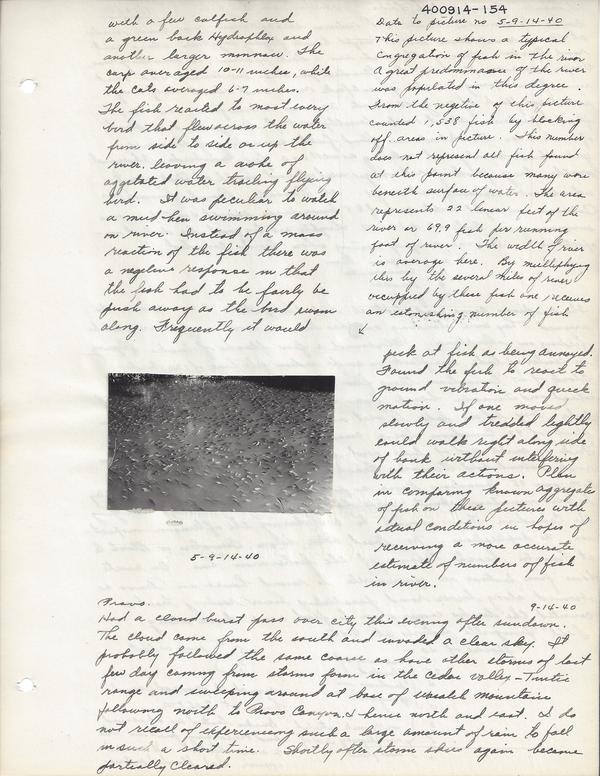 400914-154
with a few catfish and
a green back Hydrophlex and
another larger minnow. The
carp averaged 10-11 inches, while
the cats averaged 6-7 inches.
The fish reacted to most every
bird that flew across the water
from side to side or up the
river, leaving a wake of
aggitated water trailing flying
bird. It was peculiar to watch
a mud hen swimming around
on river. Instead of a mass
reaction of the fish there was
a negative response in that
the fish had to be fairly be
push away as the bird swam
along. Frequently it would
Data to picture no 5-9-14-40
This picture shows a typical
Congregation of fish in the river
A great predominance of the river
was populated in this degree.
From the negative of this picture
counted 1,538 fish by blocking
off areas in picture. This number
does not represent all fish found
at this point because many were
beneith surface of water. The area
represents 22 linear feet of the
river or 69.9 fish per running
foot of river. The width of river
is average here. By multiplying
this by the several miles of river
occuppied by these fish one receives
an estonishing number of fish
peck at fish as being annoyed.
Found the fish to react to
ground vibration and quick
motion. If one moves
slowly and tredded lightly
could walk right along side
of bank without interfering
with their actions. Plan
in comparing known aggregates
of fish on these pictures with
actual conditions in hopes of
receiving a more accurate
estimate of numbers of fish
in river.
5-9-14-40
Provo. 9-14-40
Had a cloud burst pass over city this evening after sundown.
The cloud came from the south and invaded a clear sky. It
probably followed the same course as have other storms of last
few day coming from storms form in the Cedar Valley-Tintic
range and sweeping around at base of Wasatch Mountains
following north to Provo Canyon & hence north and east. I do
not recall of experiencing such a large amount of rain to fall
in such a short time. Shortly after storm skies again became
partially cleared.